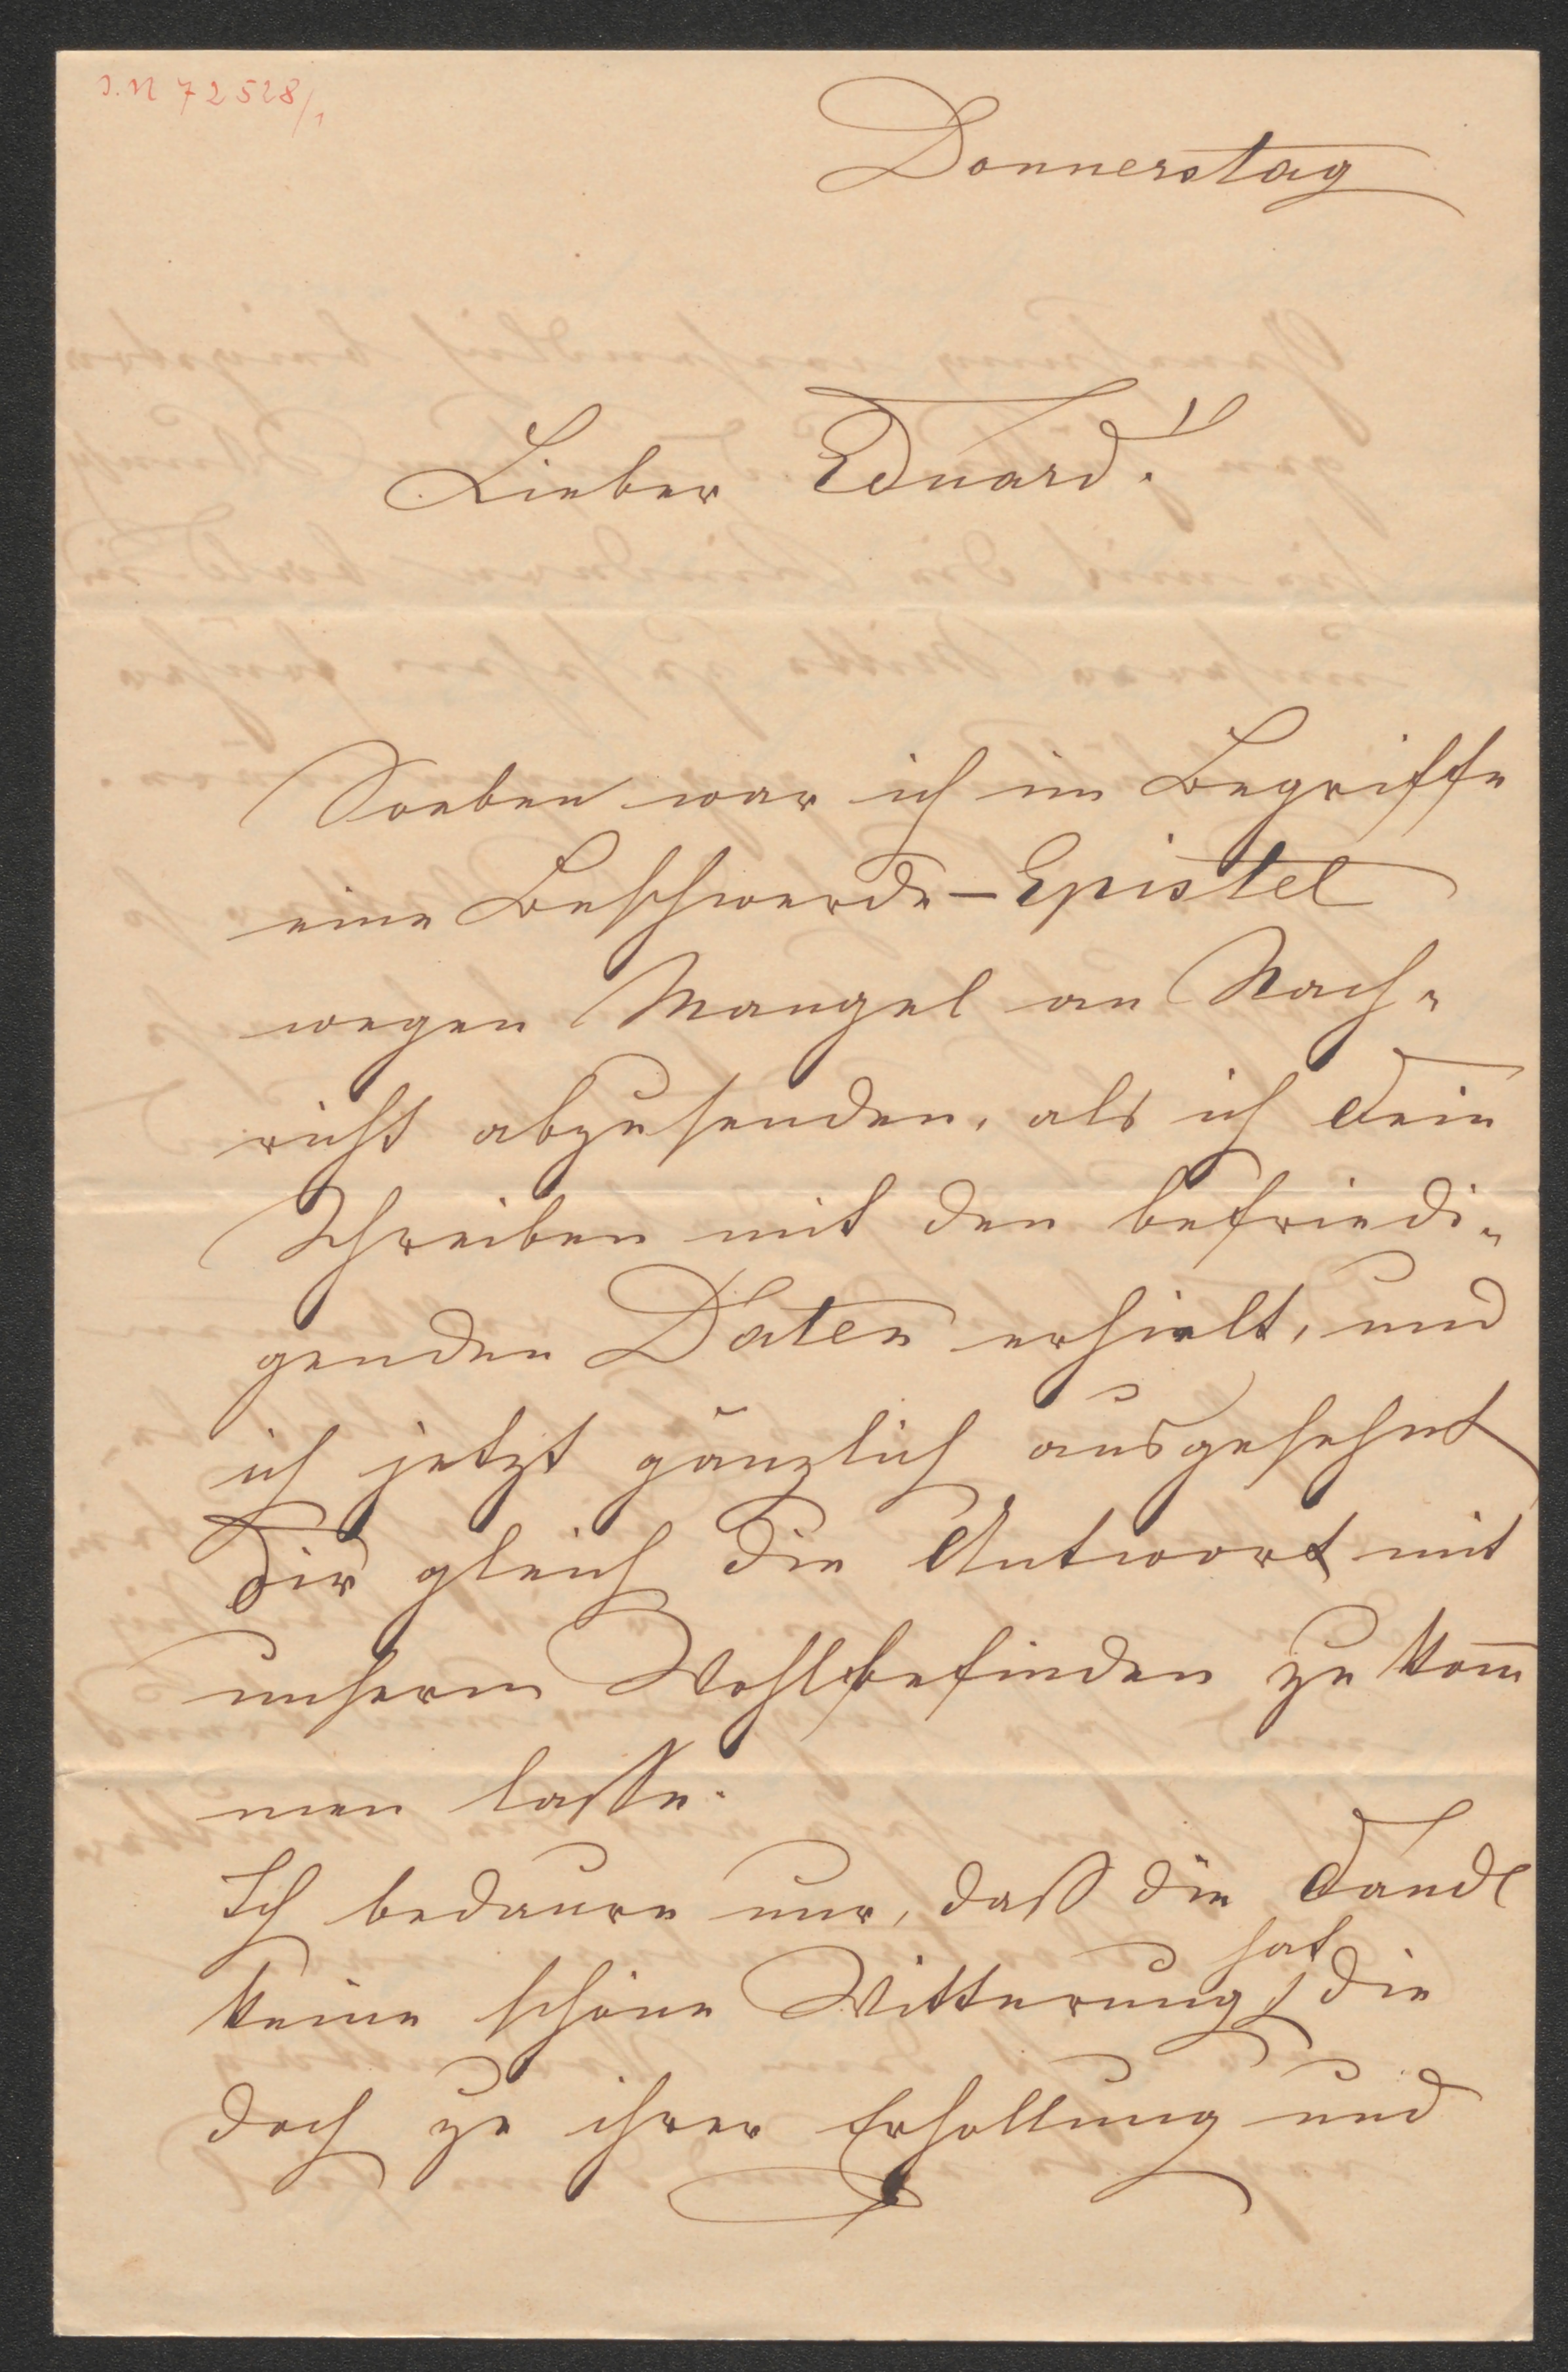 I.N 72528/1
Donnerstag
Lieber Eduard!
Soeben war ich im Begriffe
eine Beschwerde-Epistel
wegen Mangel an Nach-
richt abzusenden, als ich Dein
Schreiben mit den befriedi-
genden Daten erhielt, und
ich jetzt gänzlich ausgesöhnt
Dir gleich die Antwort mit
unserm Wohlbefinden zu kom̅
men lasse.
Ich bedaure nur, daß die
keine schöne Witterung hat, die
doch zu ihrer Erhollung und